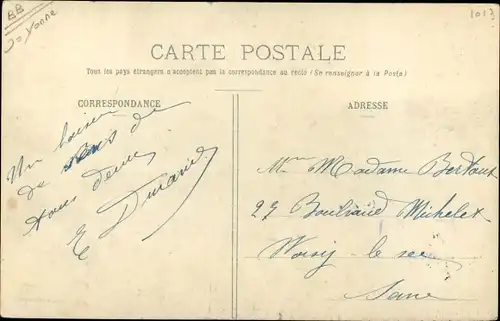 BB
Yonne
1013
CARTE POSTALE
Tout les pays étrangers n'acceptent pas la correspondance au recto (Se renseigner à la Poste)
CORRESPONDANCE
Un baiser
de de
tous deux
E Durand
ADRESSE
Madame
27 Boulvard Michelet
Noisy le sec
Seine